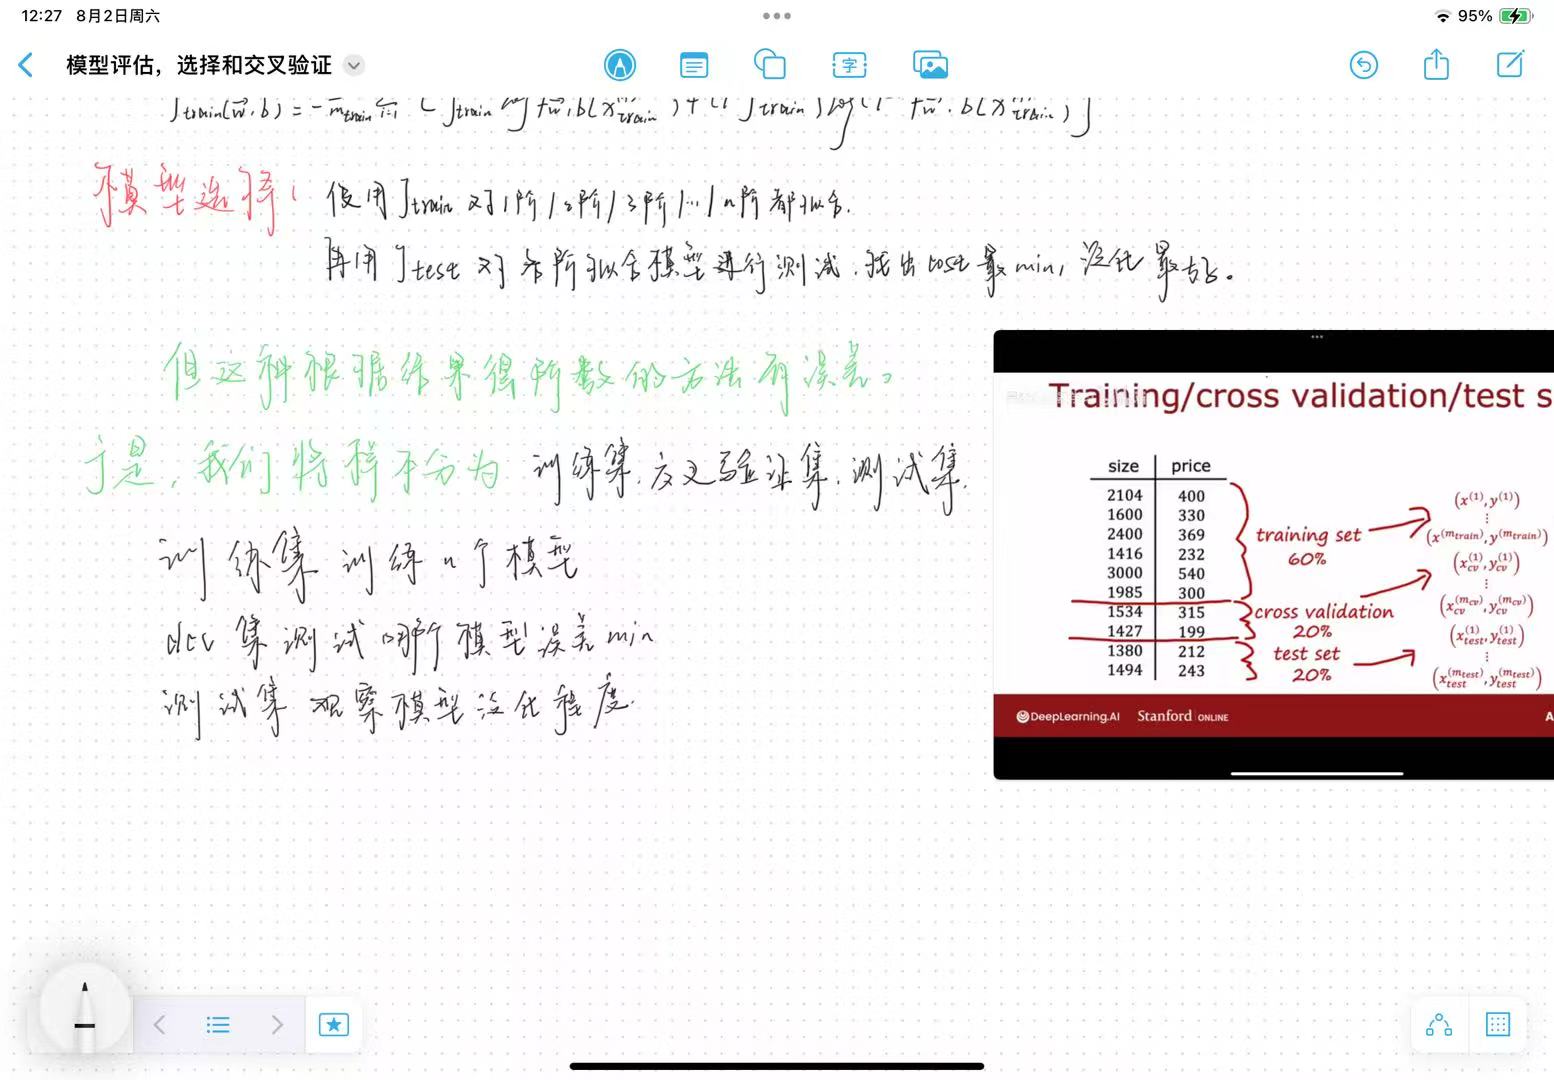 12:27 8月2日周六
95%
模型评估，选择和交叉验证
字
J train(w,b) = - 1/m train Σ i=1 [ y train log f w,b(x train) + (1 - y train) log(1 - f w,b(x train) ]
模型选择: 使用J train 对1阶/2阶/3阶/.../n阶都拟合.
再用J test 对各阶拟合模型进行测试.找出cost最min,泛化最好。
但这种根据结果得阶数的方法有误差。
于是,我们将样本分为 训练集.交叉验证集.测试集.
训练集训练n个模型
dev集测试哪个模型误差min
测试集观察模型泛化程度.
Training/cross validation/test s
size price
2104 400
1600 330
2400 369
1416 232
3000 540
1985 300
1534 315
1427 199
1380 212
1494 243
training set
60%
cross validation
20%
test set
20%
(x^(1), y^(1))
⋮
(x^(m train), y^(m train))
(x cv^(1), y cv^(1))
⋮
(x cv^(m cv), y cv^(m cv))
(x test^(1), y test^(1))
⋮
(x test^(m test), y test^(m test))
DeepLearning.AI Stanford ONLINE
A